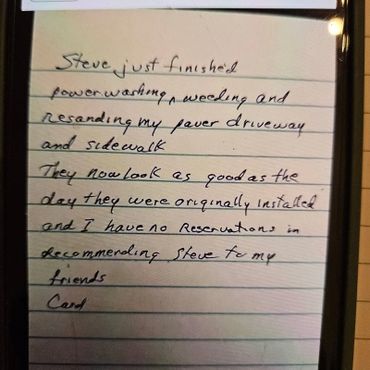 Steve just finished
powerwashing, weeding and
resanding my paver driveway
and sidewalk
They now look as good as the
day they were originally installed
and I have no Reservations in
Recommending Steve to my
friends